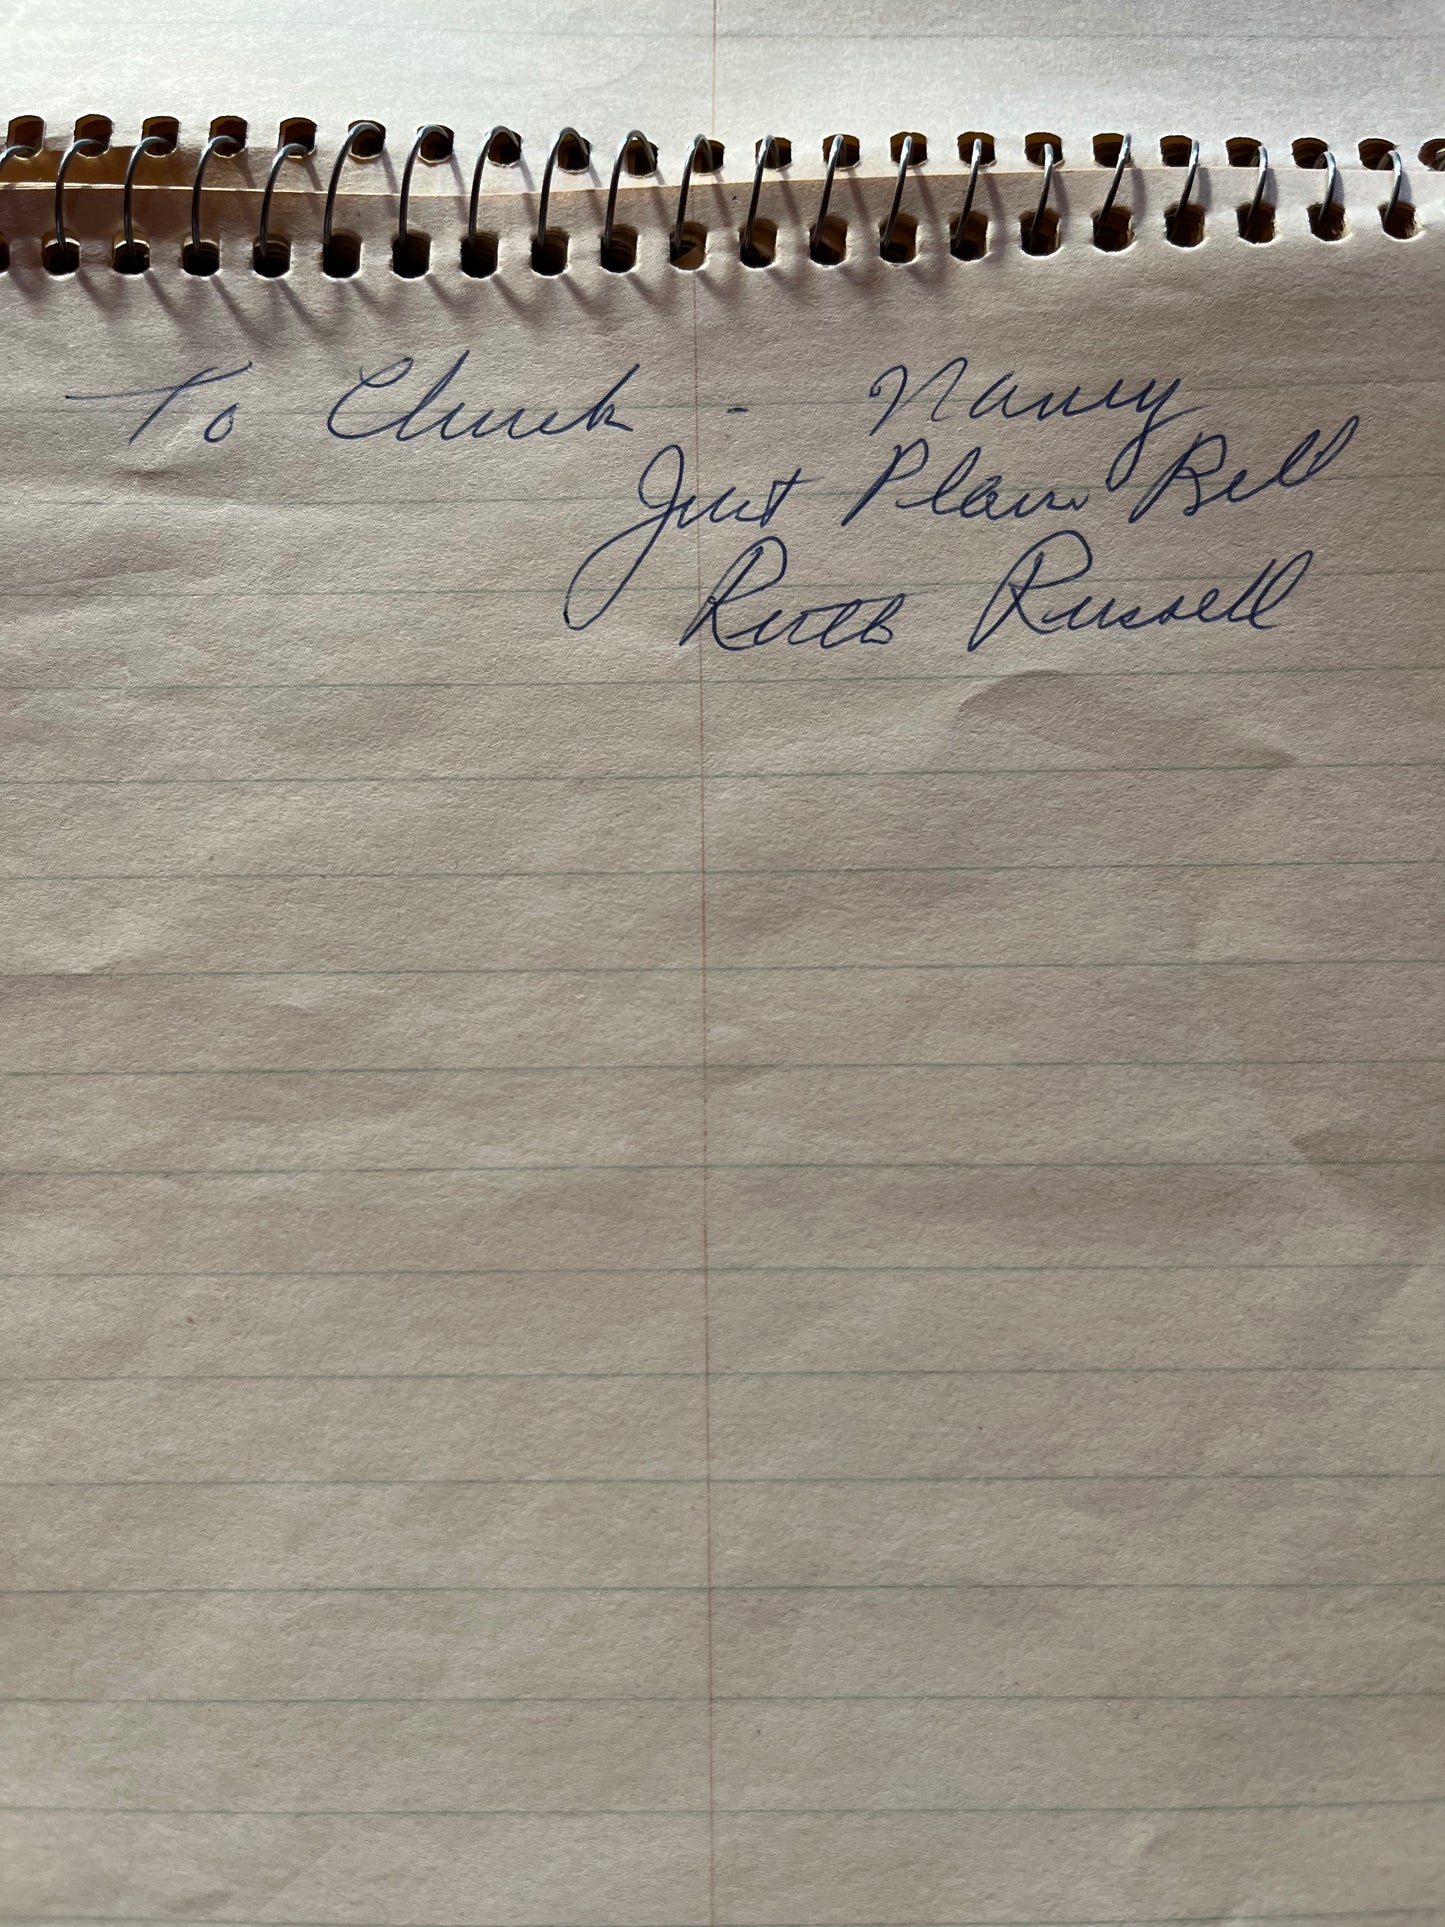 To Chuck - Nancy
Just Plain Bill
Ruth Russell